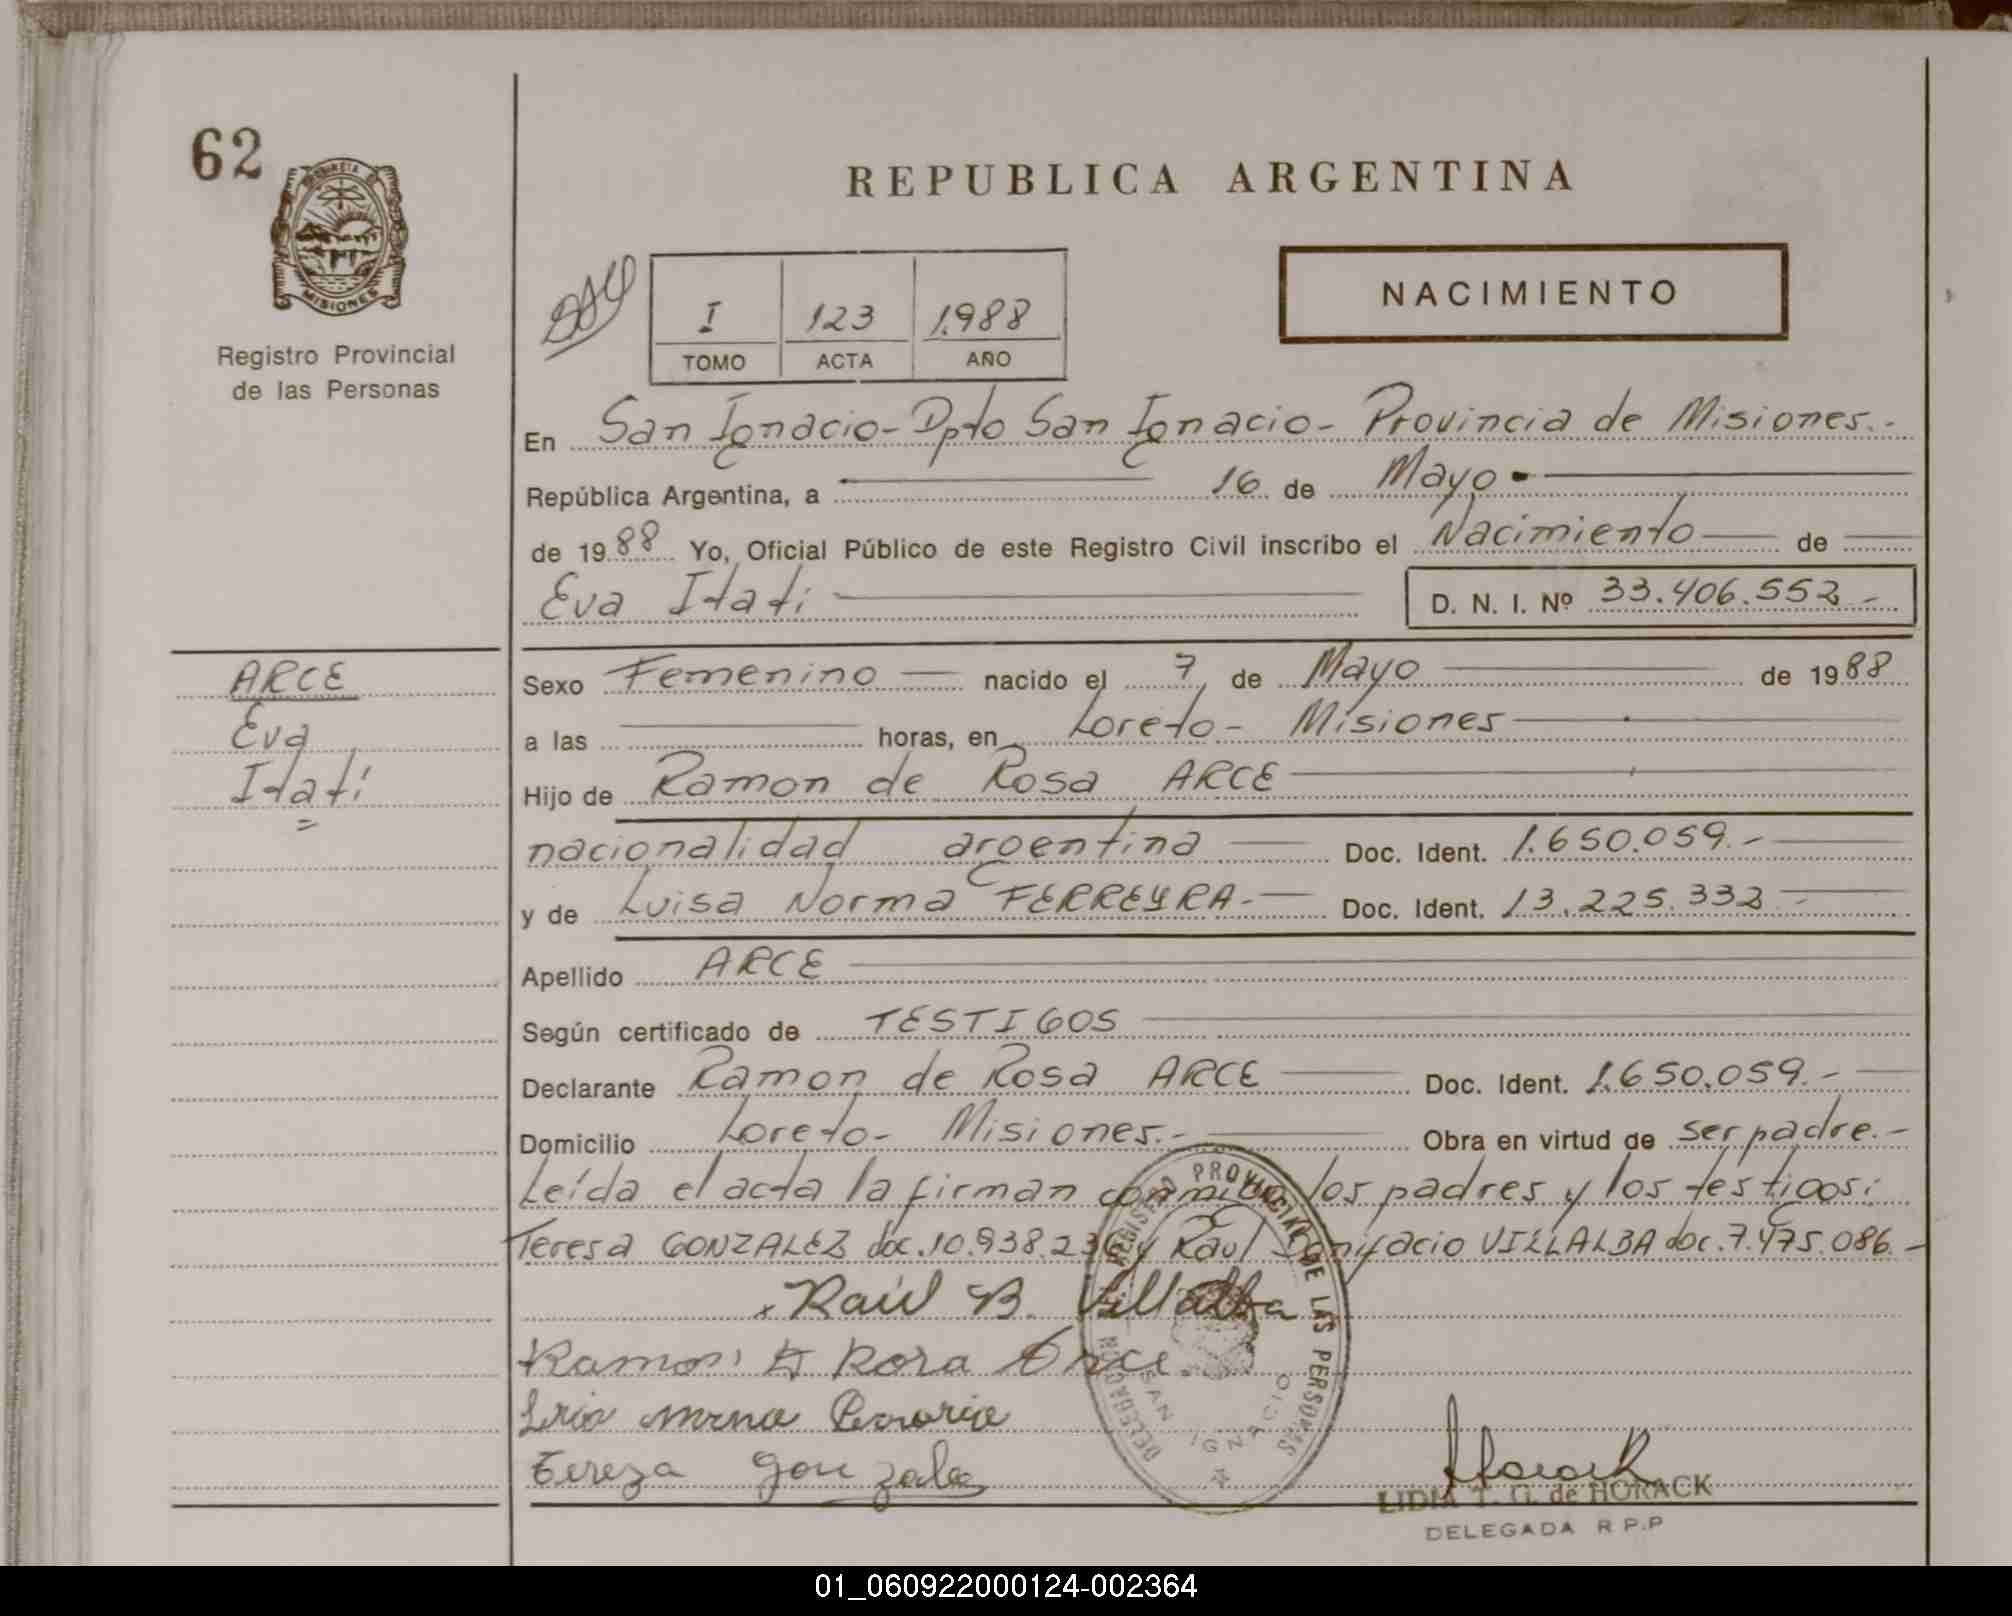 62
PROVINCIA D
MISIONES
Registro Provincial
de las Personas
REPUBLICA ARGENTINA
NACIMIENTO
I 123 1.988
TOMO ACTA AÑO
En San Ignacio - Dpto San Ignacio - Provincia de Misiones.-
República Argentina, a 16 de Mayo
de 1988 Yo, Oficial Público de este Registro Civil inscribo el Nacimiento de
Eva Itatí D. N. I. Nº 33.406.552.-
ARCE
Eva
Itatí
Sexo Femenino nacido el 7 de Mayo de 1988
a las horas, en Loreto - Misiones
Hijo de Ramon de Rosa ARCE
nacionalidad argentina Doc. Ident. 1.650.059.-
y de Luisa Norma FERREYRA.- Doc. Ident. 13.225.332.-
Apellido ARCE
Según certificado de TESTIGOS
Declarante Ramon de Rosa ARCE Doc. Ident. 1.650.059.-
Domicilio Loreto - Misiones.- Obra en virtud de ser padre.-
Leída el acta la firman conmigo los padres y los testigos:
Teresa GONZALEZ doc. 10.938.236 y Raul Bonifacio VILLALBA doc. 7.475.086.-
Raúl B. Villalba
Ramon D Rosa Arce
Tereza Gonzale
REGISTRO PROVINCIAL DE LAS PERSONAS
DELEGACION
SAN IGNACIO
Horack
LIDIA T. G. de HORACK
DELEGADA R.P.P
01_060922000124-002364